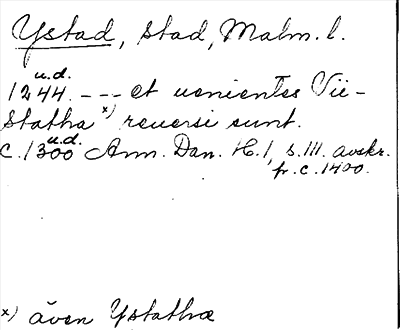 Ystad, stad, Malm. l.
u.d.
1244. --- et uenientes Vii-
statha x) reuersi sunt.
u.d.
c. 1300 Ann. Dan. H. 1, s. 111. avskr.
fr. c. 1400.
x) även Ystathæ